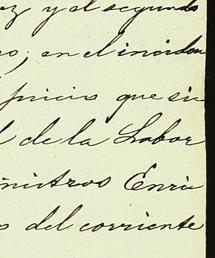 ez y el segundo
o; en el inciden
juicio que si
l de la Labor
nistros Enri
s del corriente